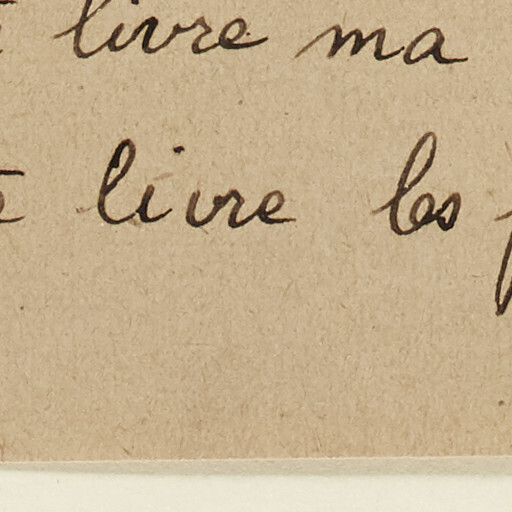 livre ma
livre les